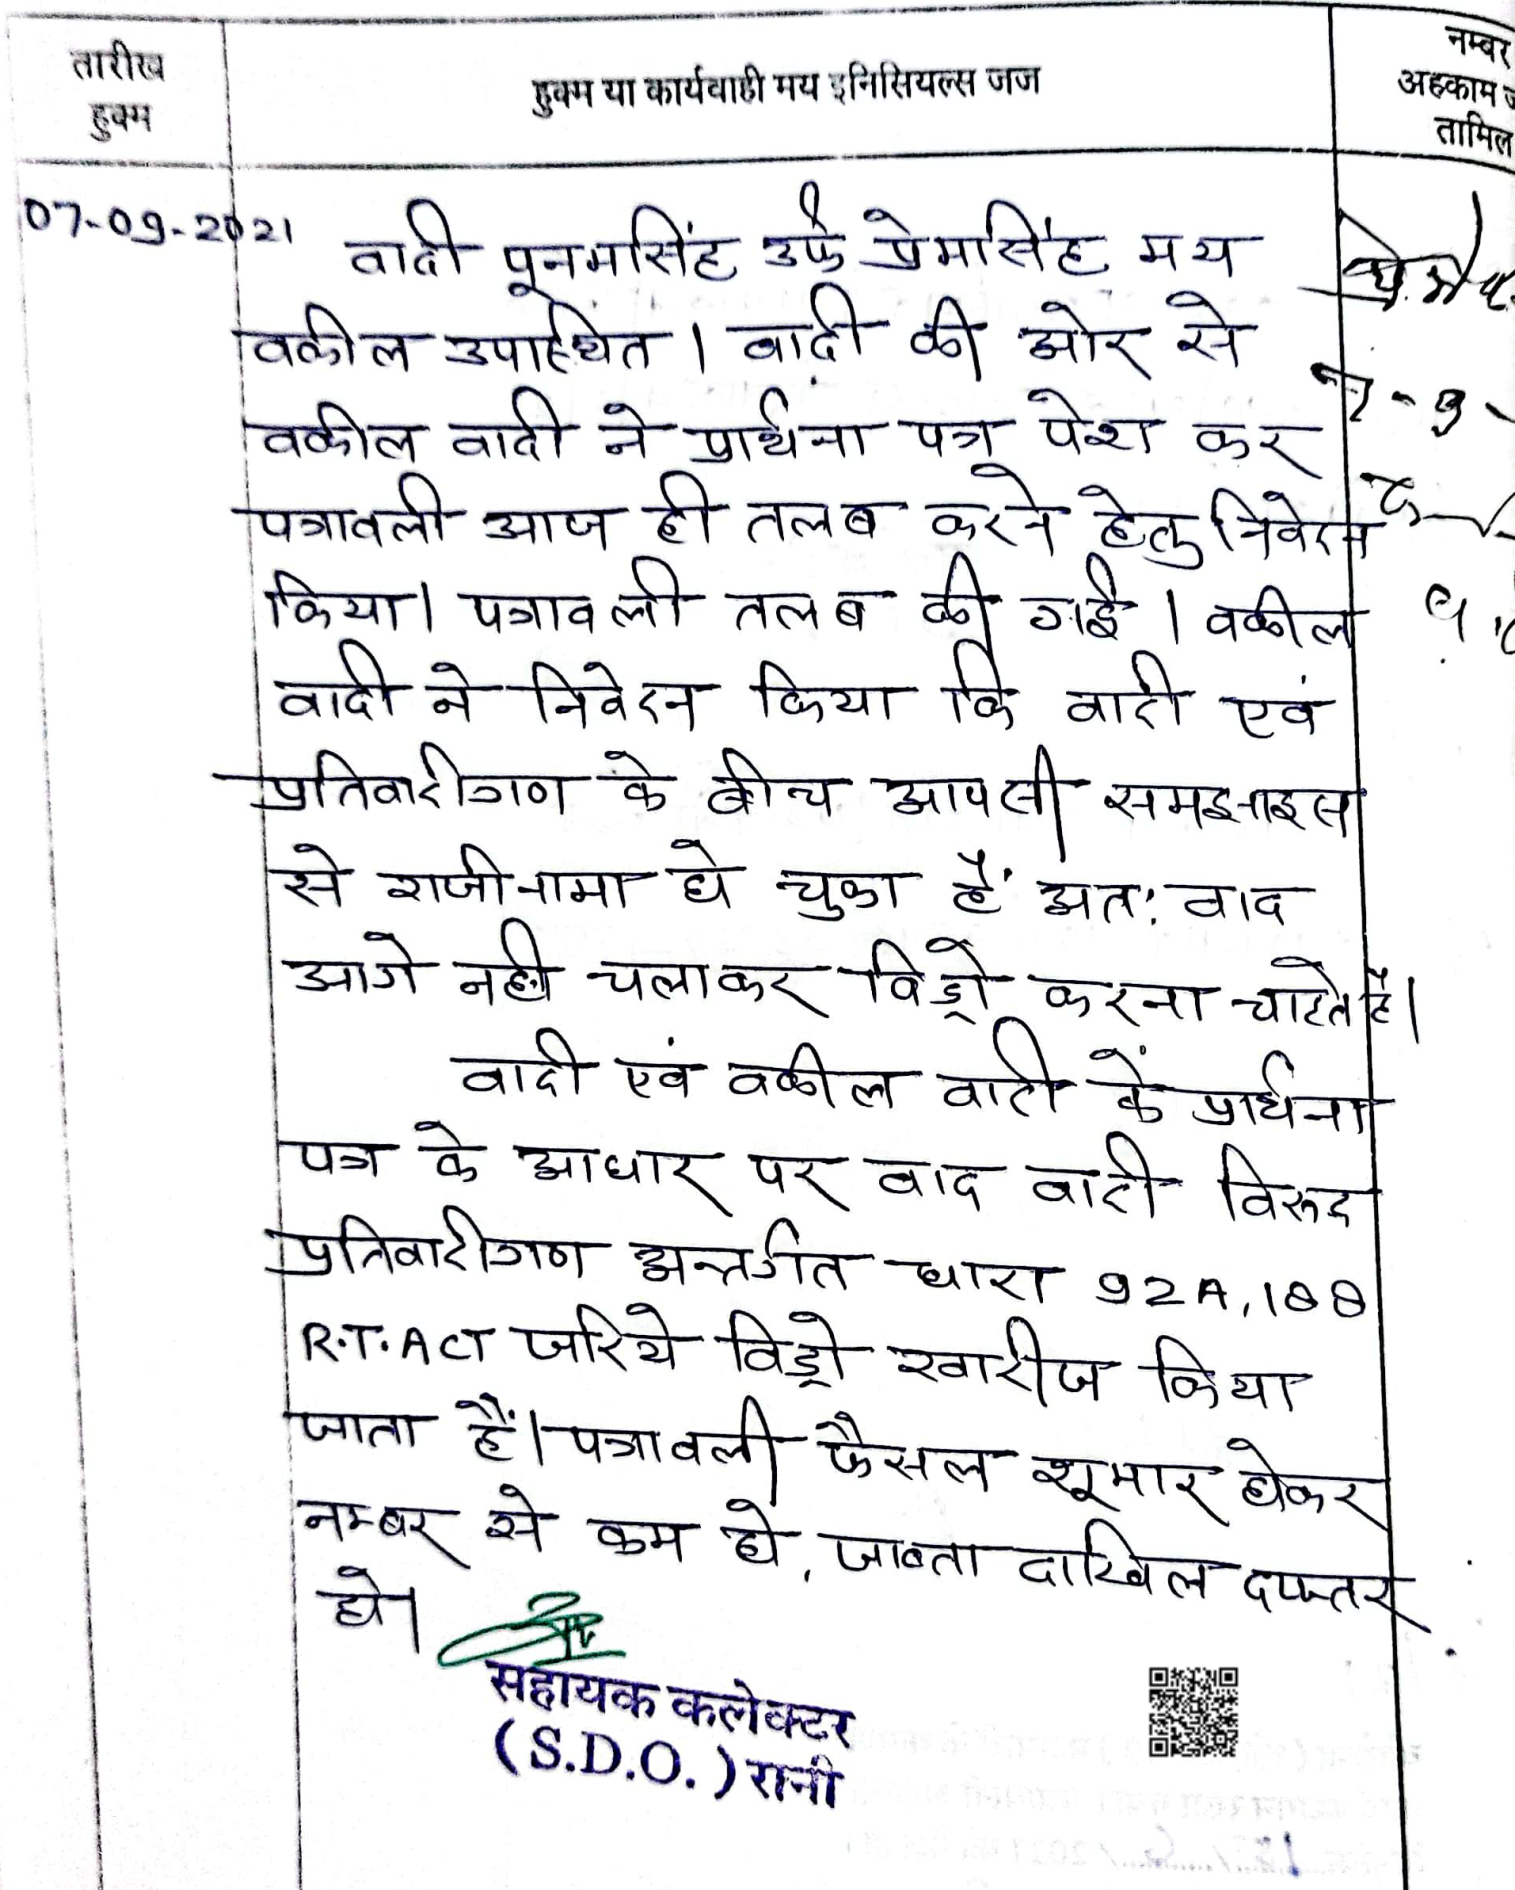 तारीख
हुक्म
हुक्म या कार्यवाही मय इनिसियल्स जज
नम्बर
अहकाम
तामिल
07-09-2021
वादी पूनमसिंह उर्फ प्रेमसिंह मय
वकील उपस्थित । वादी की ओर से
वकील वादी ने प्रार्थना पत्र पेश कर
पत्रावली आज ही तलब करने हेतु निवेदन
किया। पत्रावली तलब की गई । वकील
वादी ने निवेदन किया कि वादी एवं
प्रतिवादीगण के बीच आपसी समझाइस
से राजीनामा हो चुका हैं अतः वाद
आगे नही चलाकर विड्रो करना चाहते है।
वादी एवं वकील वादी कें प्रार्थना
पत्र के आधार पर वाद वादी विरूद
प्रतिवादीगण अन्तर्गत धारा 92A, 188
R.T. ACT जरिये विड्रो खारीज किया
जाता हैं। पत्रावली फैसल शूमार होकर
नम्बर से कम हो, जाब्ता दाखिल दफ्तर
हो।
सहायक कलेक्टर
(S.D.O.) रानी